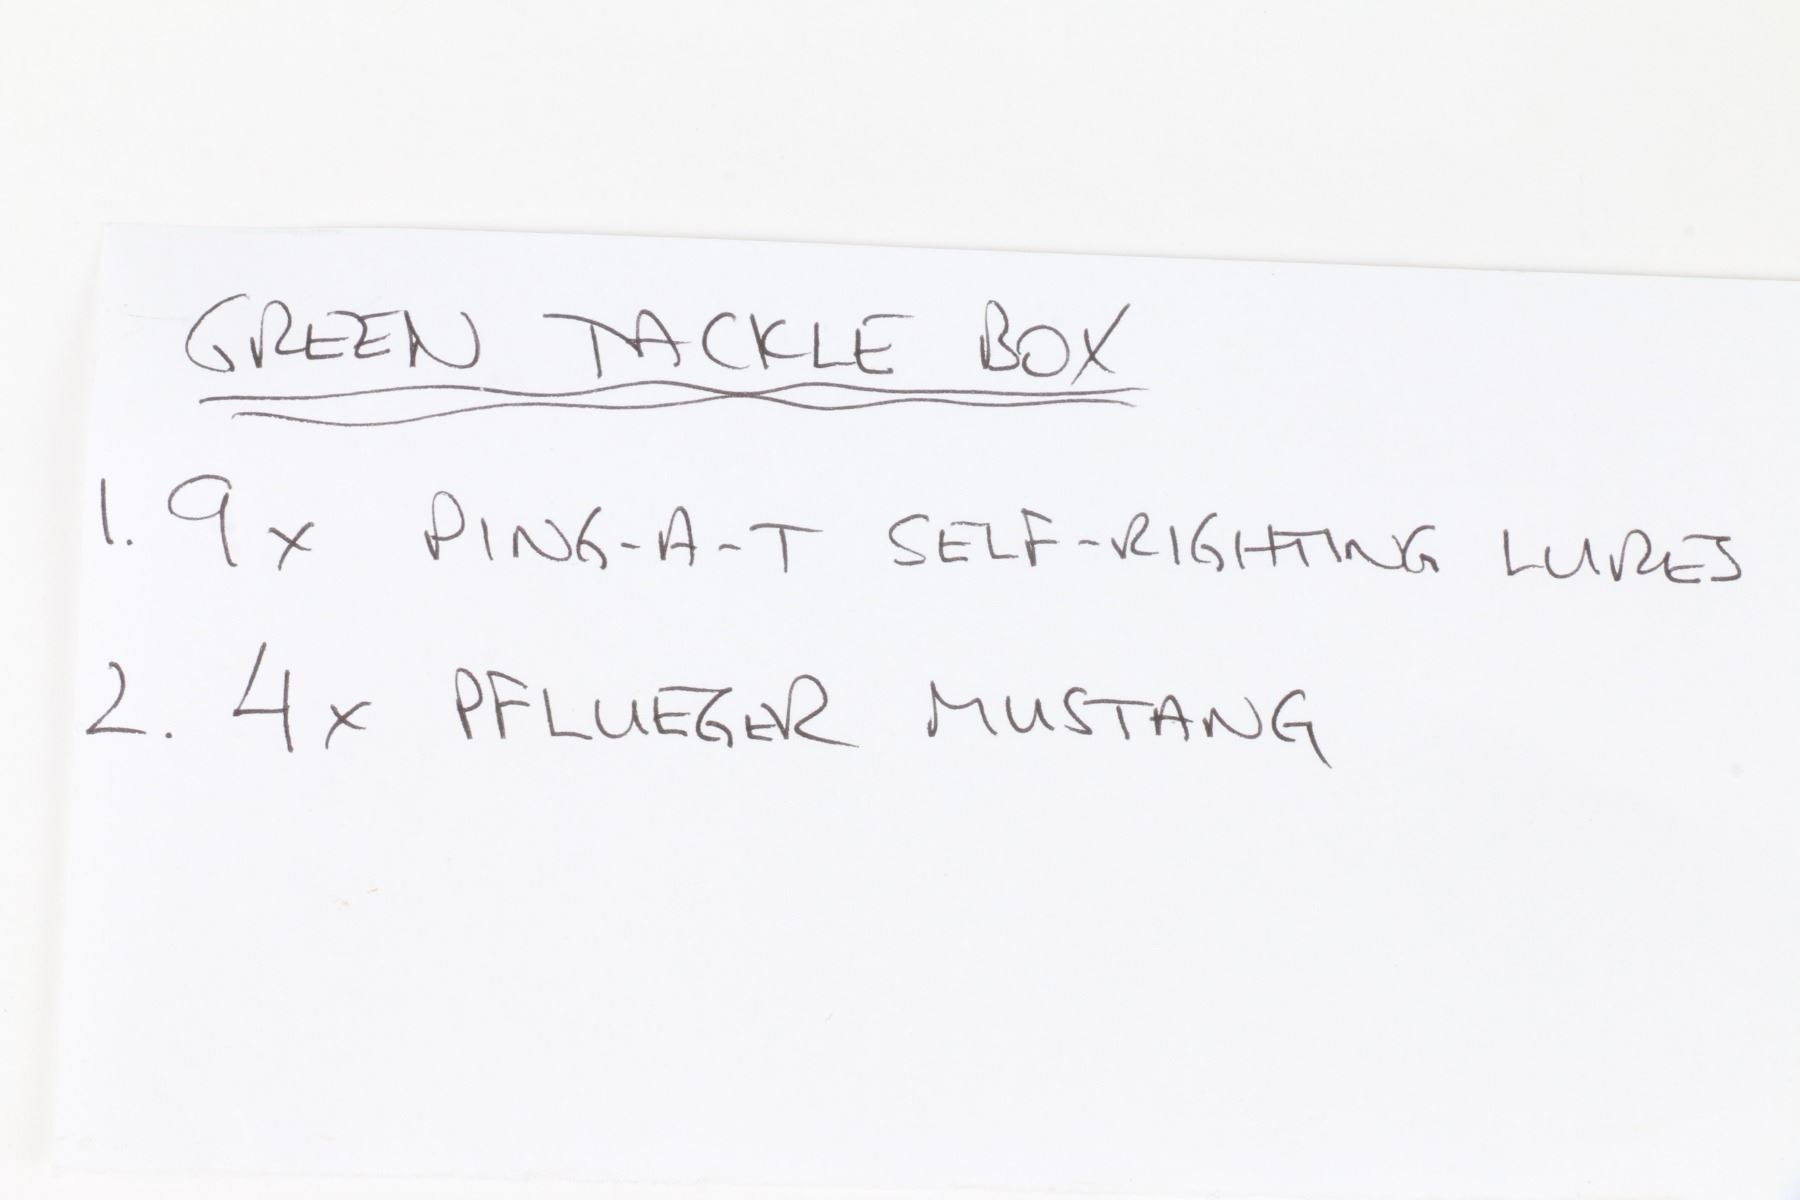 GREEN TACKLE BOX
1. 9x PING-A-T SELF-RIGHTING LURES
2. 4x PFLUEGER MUSTANG